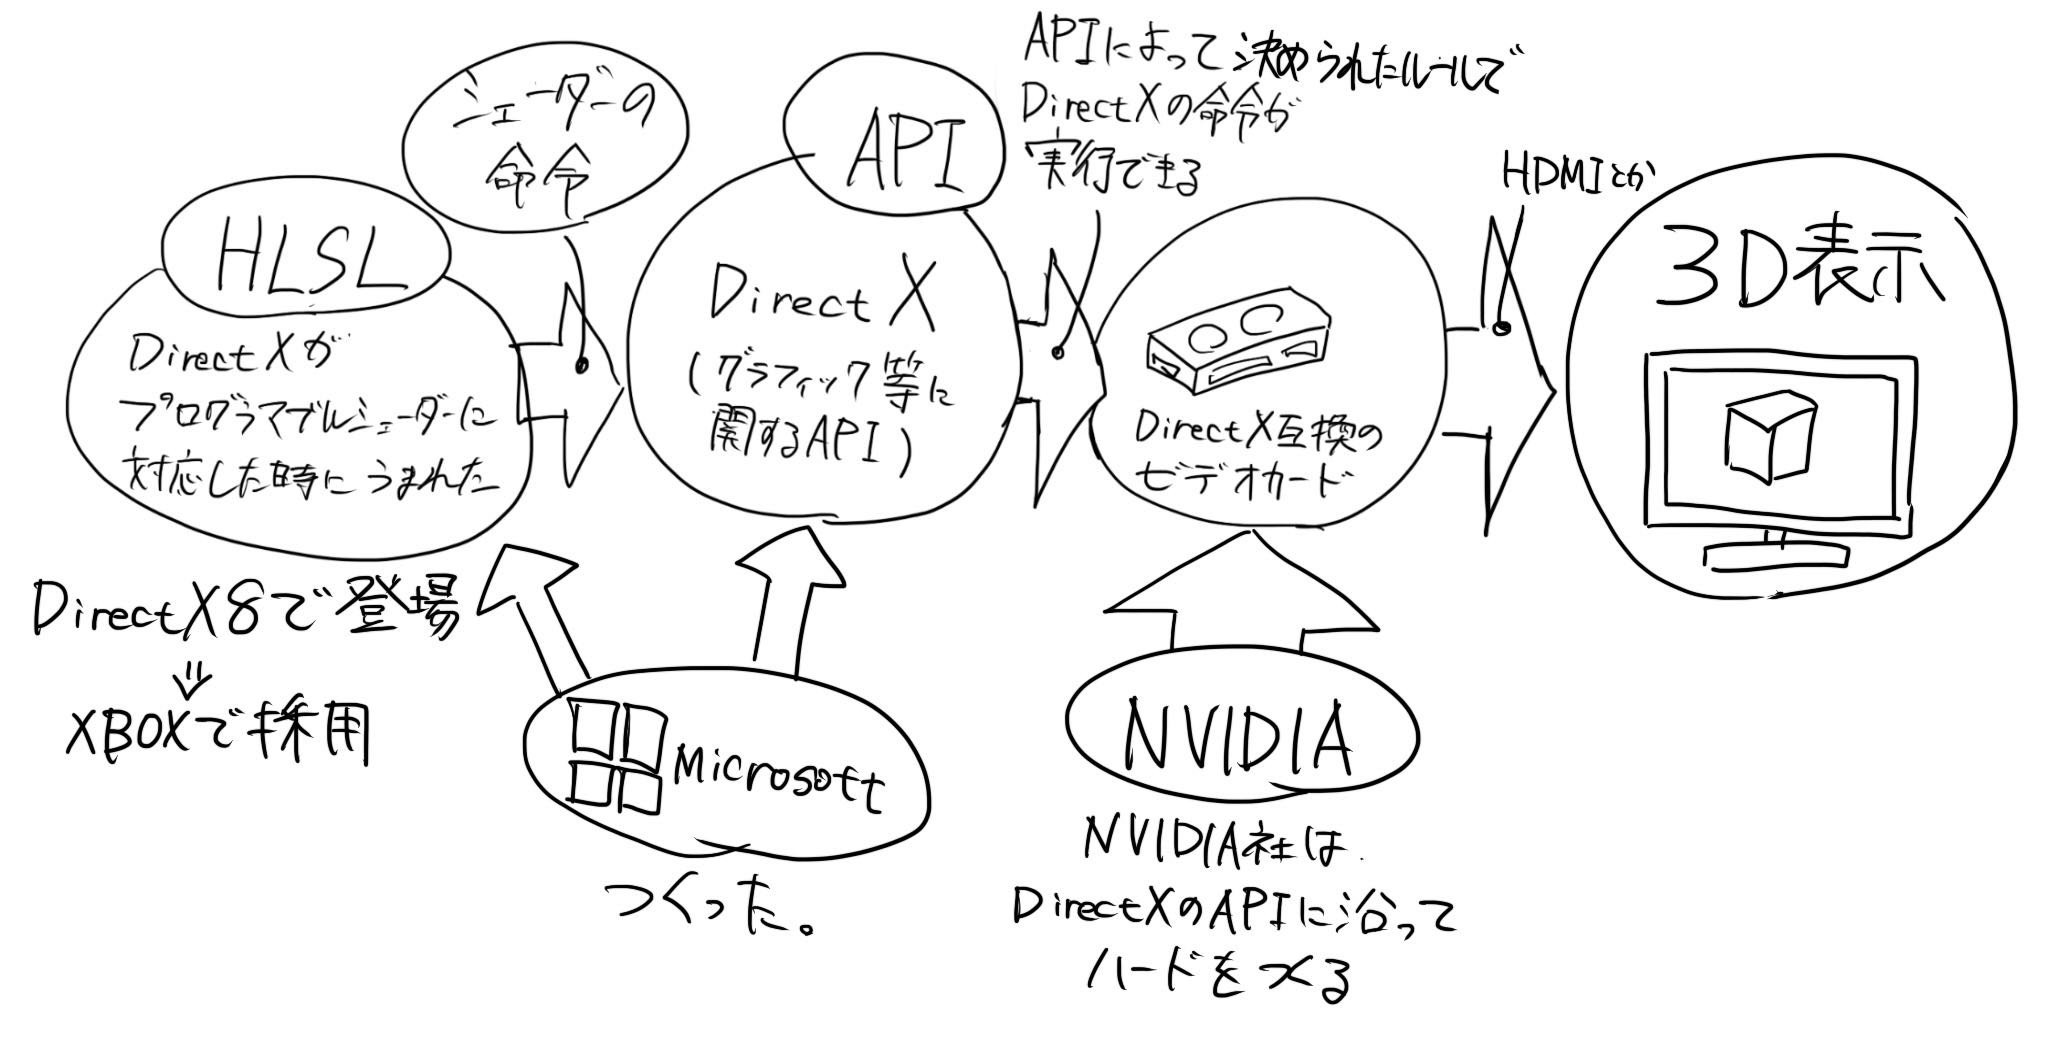 シェーダーの
命令
API
APIによって決められたルールで
DirectXの命令が
実行できる
HDMIとか
HLSL
DirectXが
プログラマブルシェーダーに
対応した時にうまれた
DirectX
(グラフィック等に
関するAPI)
DirectX互換の
ビデオカード
3D表示
DirectX8で登場
XBOXで採用
Microsoft
つくった。
NVIDIA
NVIDIA社は
DirectXのAPIに沿って
ハードをつくる